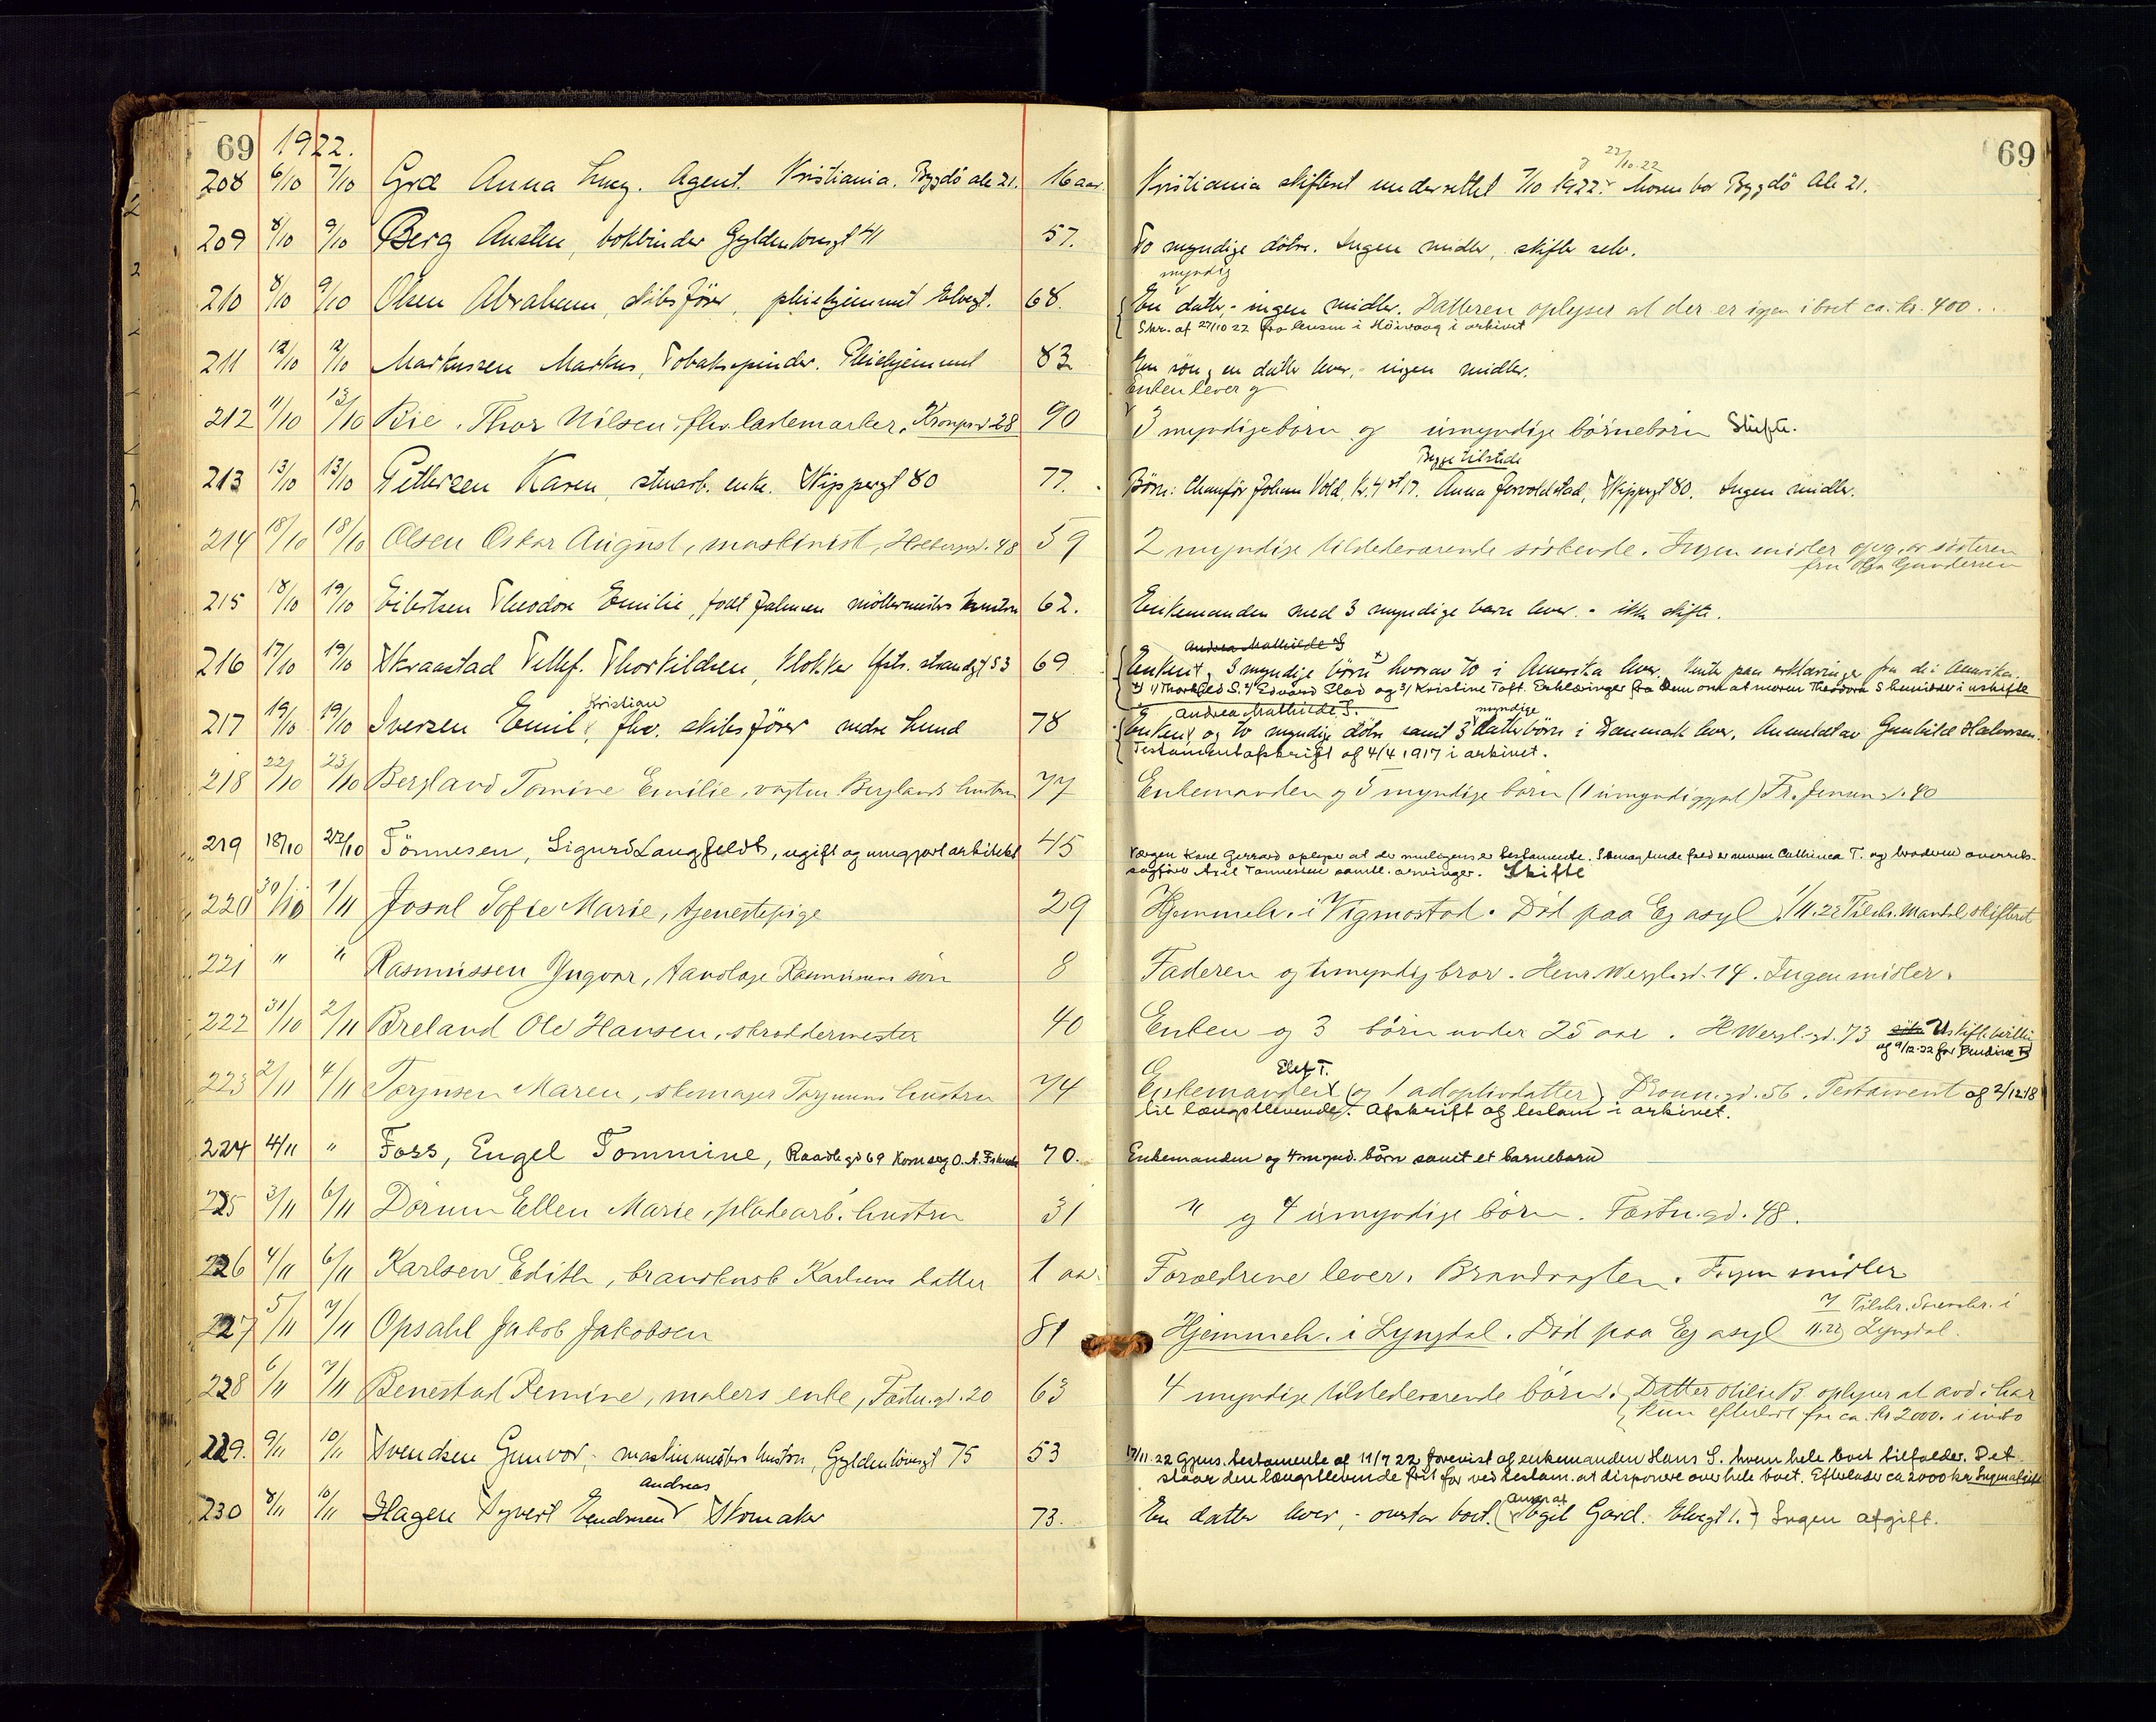 69 1922. 69
208 6/10 7/10 Grα Anna Lucy. Agent. Kristiania. Bygdö ale 21. 16 aar. Kristiania skifteret underrettet 7/10 1922. og 22/10.22 Moren bor Bygdö Ale 21.
209 8/10 9/10 Berg Austen, bokbinder Gyldenlövesgt 41 57. To myndige dötre. Ingen midler, skifter selv.
myndig
210 8/10 9/10 Olsen Abraham, skibsförer, pleiehjemmet Elvegt. 68. En datter, - ingen midler. Datteren oplyser at der er igjen i boet ca. kr. 400...
Skr. af 27/10 22 fra lensm i Höivaag i arkivet
211 12/10 12/10 Markussen Markus, Tobakspinder. Pleiehjemmet 83 En sön og en datter lever, - ingen midler.
Enken lever og
212 11/10 13/10 Bie. Thor Nilsen, fhv. lastemerker, Kronprd 28 90 3 myndige børn og umyndige børnebørn Skifte.
Begge tilstede
213 13/10 13/10 Pettersen Karen, stuarb. enke. Skippergt 80 77. Börn: Chauför Johan Vold, Kr. 4 st 17. Anna Jorvoldstad, Skippergt 80. Ingen midler.
214 18/10 18/10 Olsen Oskar August, maskinist, Holbergsd. 48 59 2 myndige tilstedeværende söskende. Ingen midler opg. av søsteren
fru Olga Gundersen
215 18/10 19/10 Eibertsen Theodora Emilie, født Jahnsen möllermesters hustru 62. Enkemanden med 3 myndige barn lever. - ikke skifte.
Andrea Mathilde S
216 17/10 19/10 Skraastad Tellef. Thorkildsen, klokker Ø. strandgt 53 69 Enken, 3 myndige börn hvorav to i Amerika lever. Vente paa erklæringer fra de i Amerika.
x) 1/ Thorkild S. 2/ Edvard Elad og 3/ Kristine Toft. Erklæringer fra dem om at moren Theodora S hensidder i uskifte
Andrea Mathilde S. myndige
217 19/10 19/10 Iversen Emil Kristian, fhv. skibsförer nedre Lund 78 Enken og to myndige dötre samt 3 datterbörn i Danmark lever. Anmeldt av Gunhild Halvorsen.
Testamentafskrift af 4/4 1917 i arkivet.
218 22/10 23/10 Bergland Tomine Emilie, vogtm. Berglands hustru 77 Enkemanden og 5 myndige børn (1 umyndiggjort) Fr. Jenunsd. 40
219 18/10 23/10 Tönnesen, Sigurd Langfeldt, ugift og umyndiggjort arkitekt 45 Værgen Karl Gerrard oplyser at der muligens er testamente. I benægtende fald er moren Cathinca T. og broderen overrets-
sagfører Axel Tønnesen samtl. arvinger. Skifte
220 30/10 1/11 Josal Sofie Marie, tjenestepige 29 Hjemmeh. i Vigmostad. Død paa Eg asyl 1/11.22 Tilskr. Mandal skifteret
221 " " Rasmussen Yngvar, tandlæge Rasmussens sön 8 Faderen og umyndig bror. Henr. Wergl. gd. 14. Ingen midler.
222 31/10 2/11 Breland Ole Hansen, skræddermester 40 Enken og 3 børn under 25 aar. H. Wergl. gd. 73 Uskift. bevilling
af 9/12.22 for Bendine B
Elef T.
223 2/11 4/11 Torjusen Maren, skomager Torjusens hustru 74 Enkemanden (og 1 adoptivdatter) Dronn. gd. 56. Testament af 2/12 18
til længstlevende. Afskrift af testam i arkivet.
224 4/11 " Foss, Engel Tommine, Raadh gd 69 70. Enkemanden og 4 mynd. börn samt et barnebarn
225 3/11 6/11 Dörum Ellen Marie, pladearb. hustru 31 " og 4 umyndige børn. Fæstn. gd. 48.
226 4/11 6/11 Karlsen Edith, brandkusk Karlsens datter 1 aar. Forældrene lever. Brandvagten. Ingen midler
227 5/11 7/11 Opsahl Jakob Jakobsen 81 Hjemmeh. i Lyngdal. Død paa Eg asyl 7/11.22 Tilskr. Sorenskr. i
Lyngdal.
228 6/11 7/11 Benestad Remine, malers enke, Fæstn. gt. 20 63 4 myndige tilstedeværende børn. Datter Otilie B. oplyser at avd. har
kun efterladt for ca. kr 2000. i indbo
229. 9/11 10/11 Svendsen Gunvor, - maskinmesters hustru, Gyldenlövesgt 75 53 17/11.22 Gjens. testamente af 11/7 22 forevist af enkemanden Hans S. hvem hele boet tilfalder. Det
staar den længstlevende frit for ved testam. at disponere over hele boet. Efterlader ca 2000 kr Ingen afgift
230 8/11 10/11 Hagen Syvert Endresen Andreas Skomaker 73. En datter lever, - overtar boet. (Aagot Gard. Elvegt 1. -) Ingen afgift.